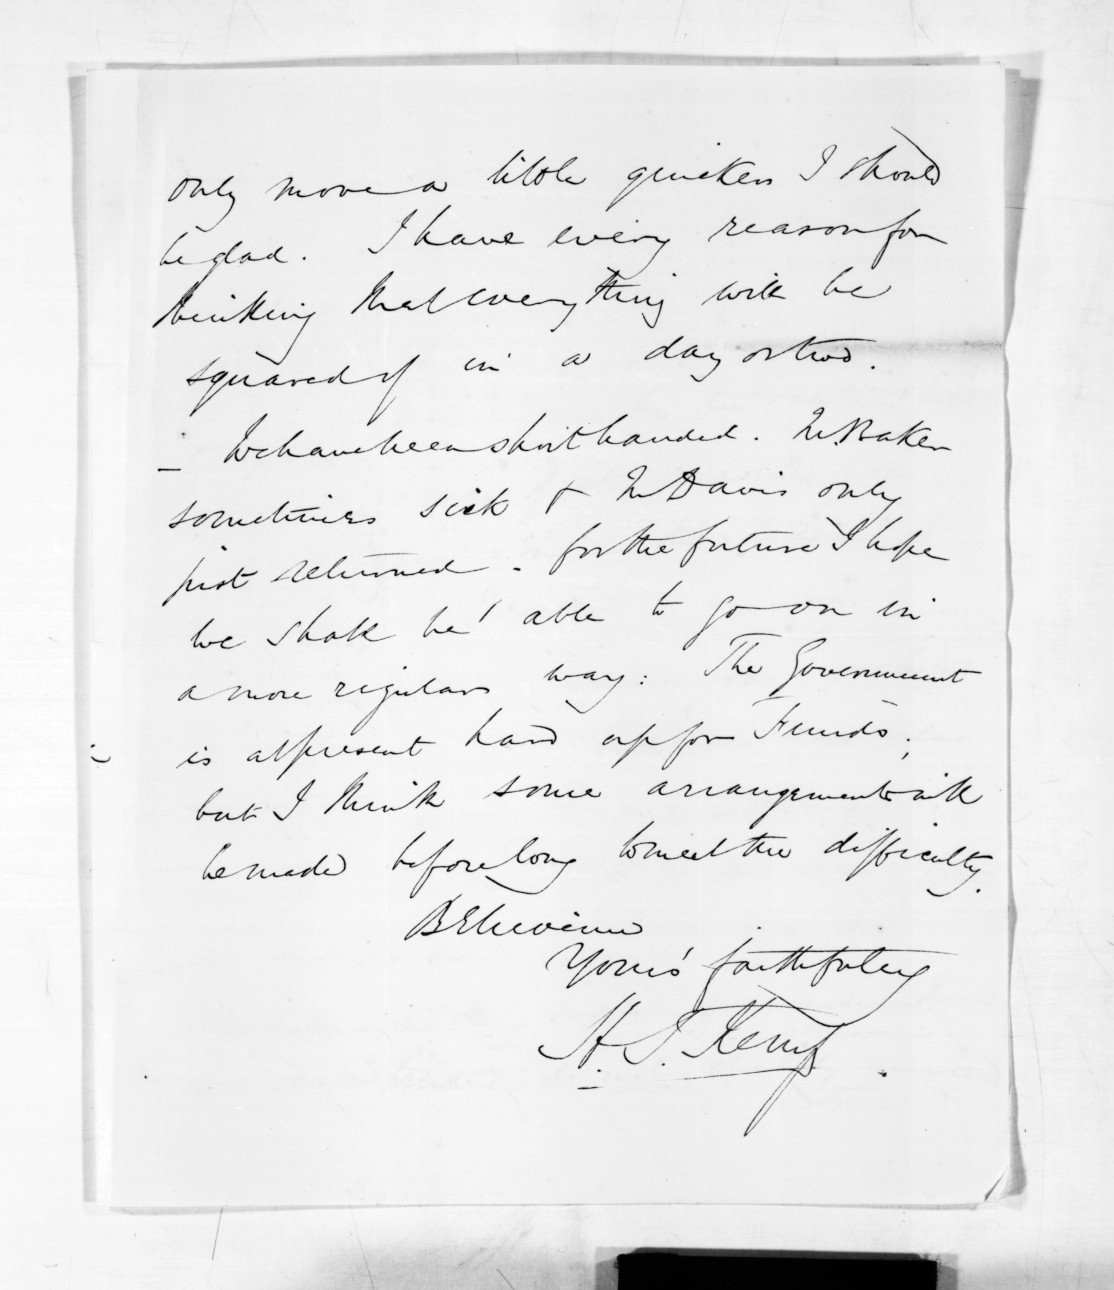 only move a little quicker I should
be glad. I have every reason for
thinking that everything will be
squared of in a day or two.
_ We have been short handed. Mr Baker
sometimes sick & Mr Davis only
just returned. for the future I hope
we shall be able to go on in
a more regular way: The Government
is at present hard up for Funds,
but I think some arrangement will
be made before long to meet the difficulty.
Believe me
Yours' faithfully
H. T. Kemp